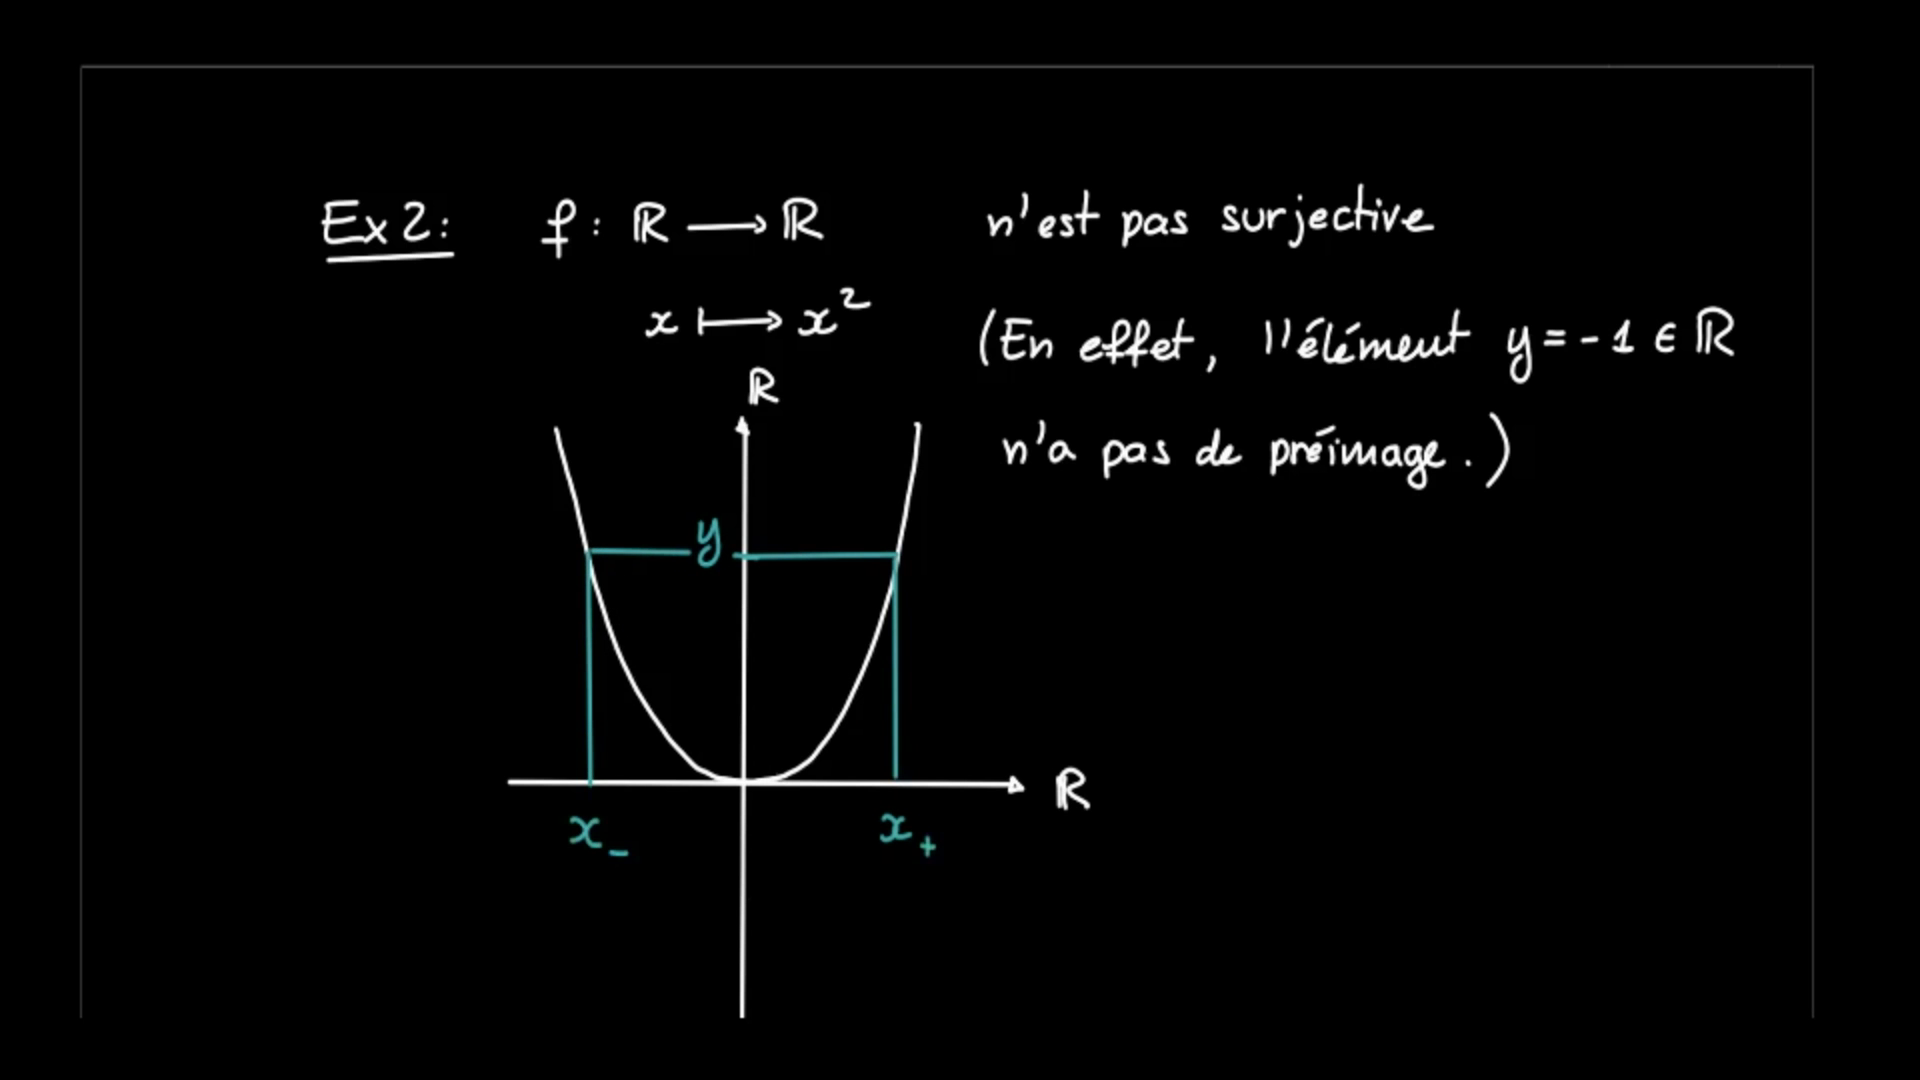 Ex 2: f: ℝ ⟶ ℝ n'est pas surjective
x ⟼ x²
(En effet, l'élément y = -1 ∈ ℝ
n'a pas de préimage.)
ℝ
y
ℝ
x₋ x₊